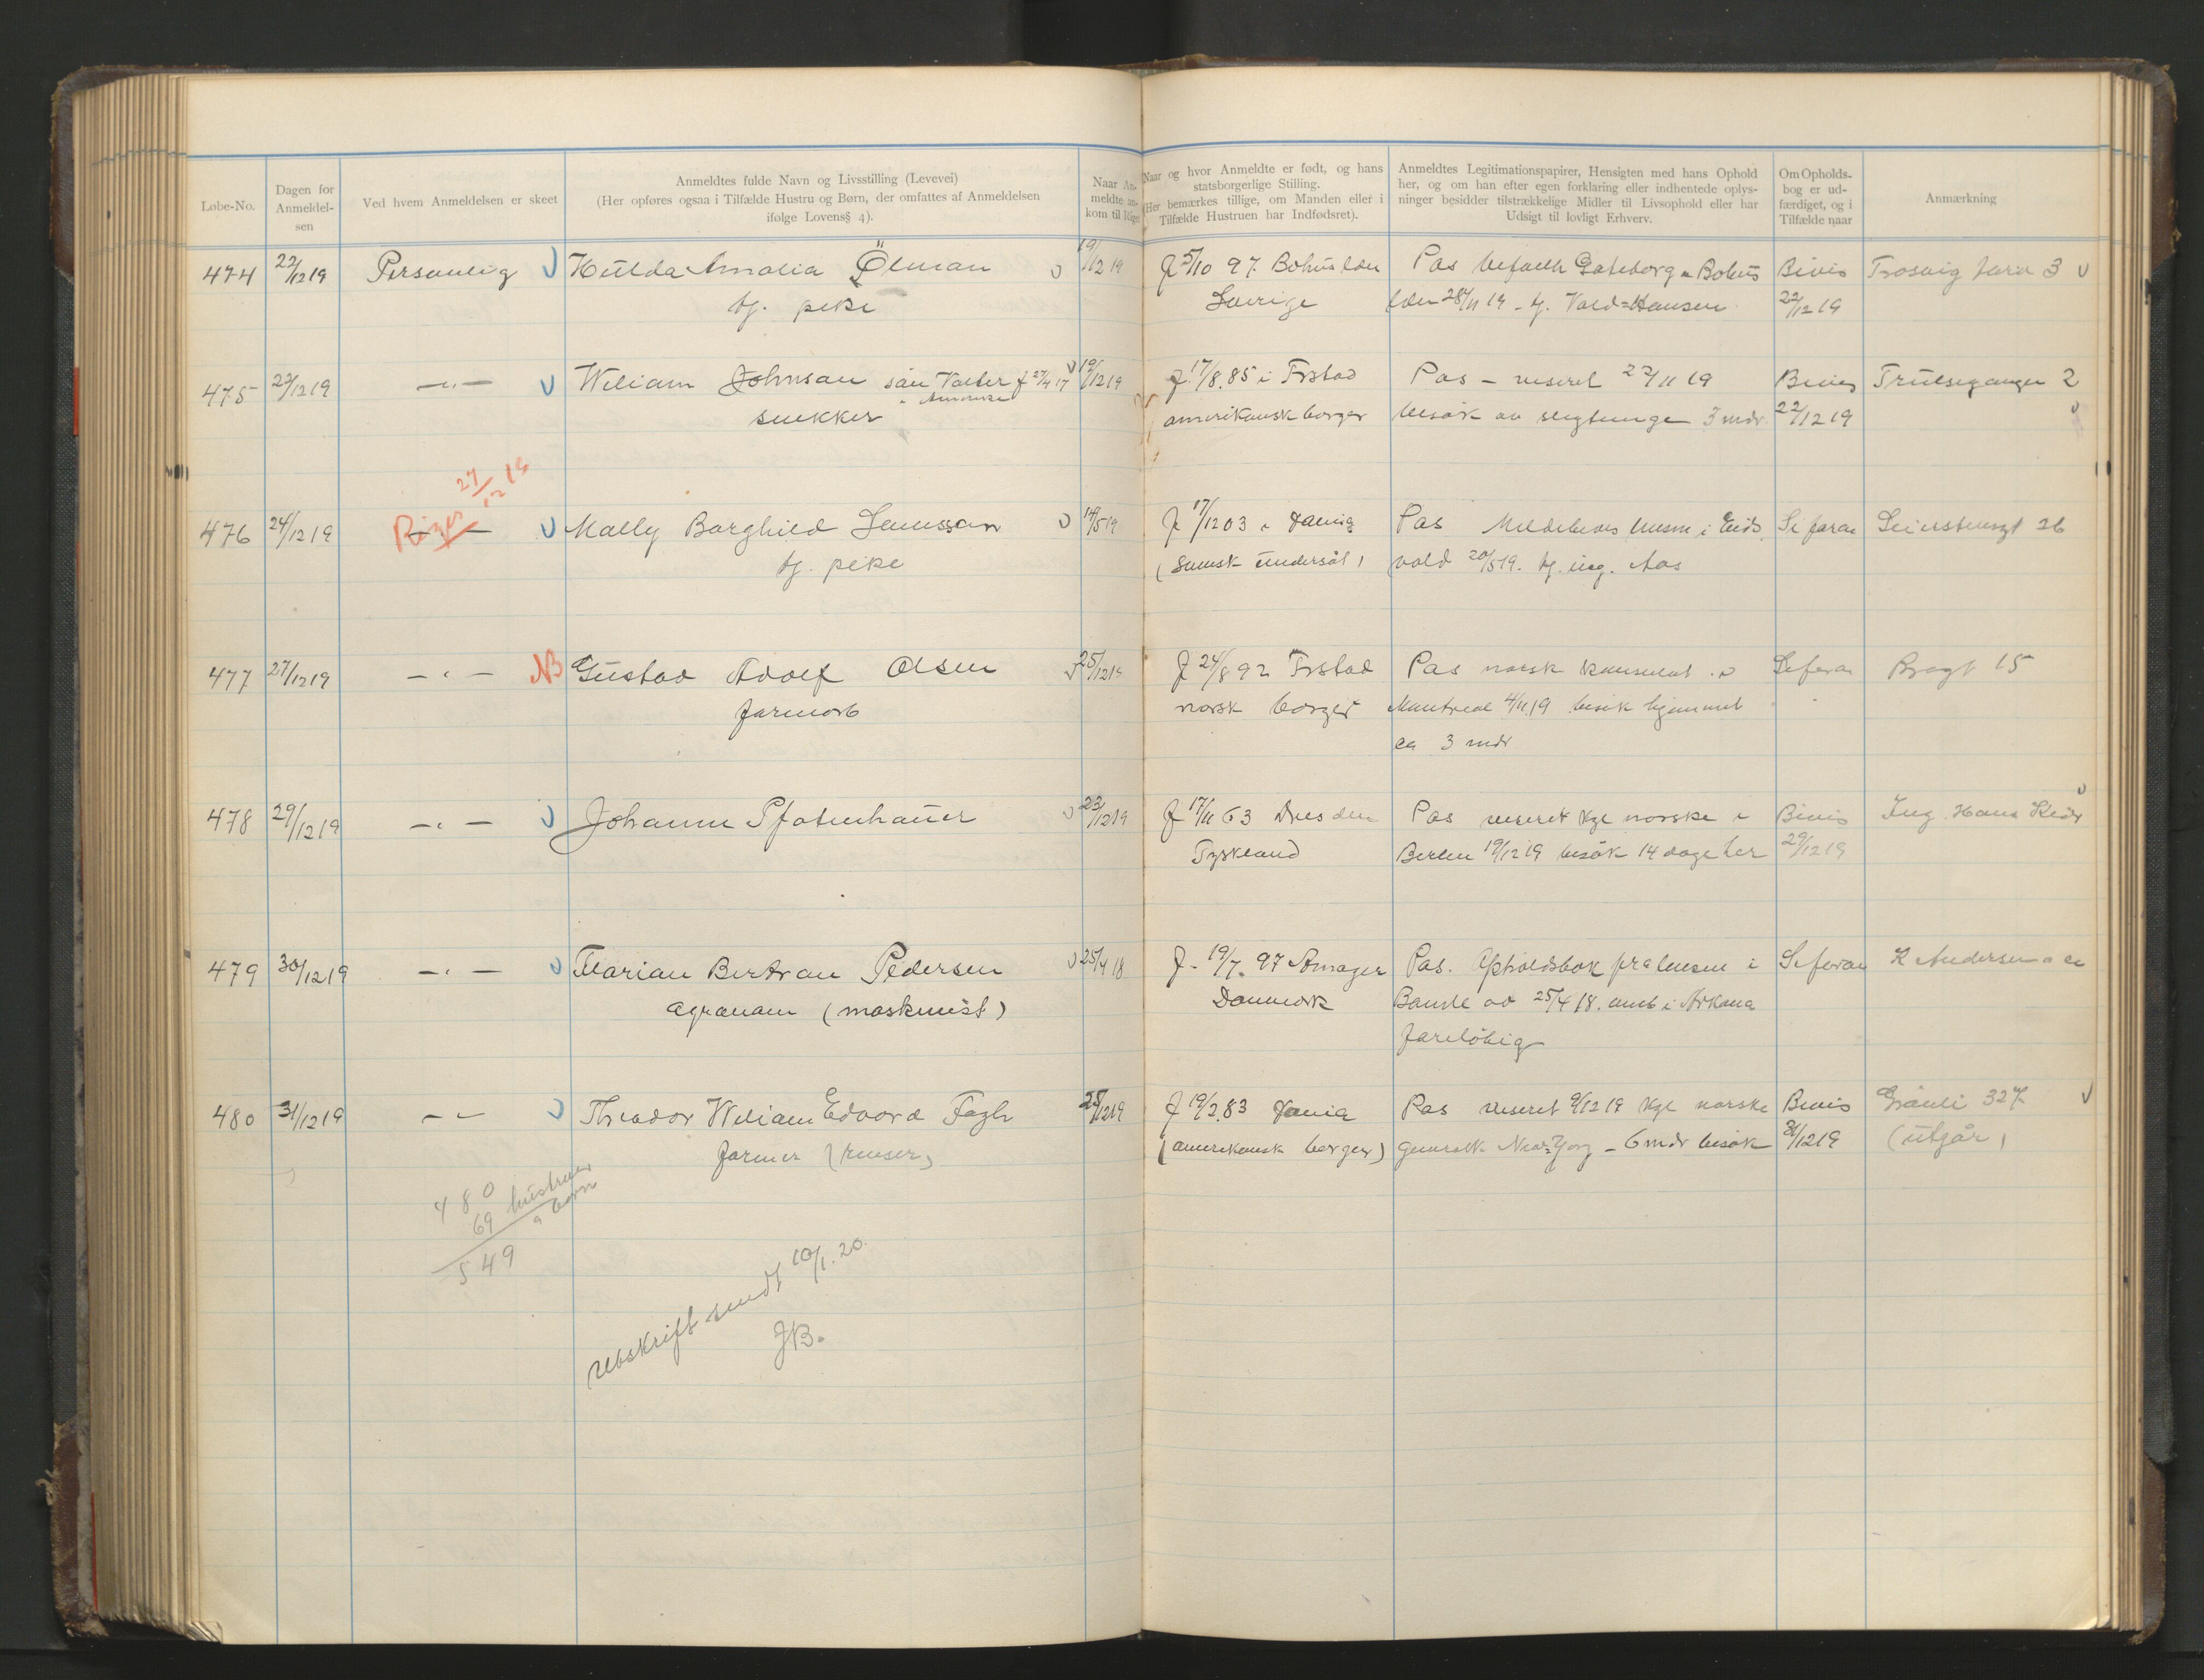 Løbe-No.
Dagen for
Anmeldel-
sen
Ved hvem Anmeldelsen er skeet
Anmeldtes fulde Navn og Livsstilling (Levevei)
(Her opføres ogsaa i Tilfælde Hustru og Børn, der omfattes af Anmeldelsen
ifølge Lovens§ 4).
Naar An-
meldte an-
kom til Riget
Naar og hvor Anmeldte er født, og hans
statsborgerlige Stilling.
(Her bemærkes tillige, om Manden eller i
Tilfælde Hustruen har Indfødsret).
Anmeldtes Legitimationspapirer, Hensigten med hans Ophold
her, og om han efter egen forklaring eller indhentede oplys-
ninger besidder tilstrækkelige Midler til Livsophold eller har
Udsigt til lovligt Erhverv.
Om Opholds-
bog er ud-
færdiget, og i
Tilfælde naar
Anmærkning
474 22/12 19 Personlig Hulda Amalia Öhman 19/12 19 f 5/10 97. Bohuslen Pas befalh Gøteborg o Bohus Bevis Trosvig 3
tj. pike Sverige len 28/11 19 - tj. Vald=Hansen 22/12 19
475 22/12 19 — " — Wiliam Johnsan sön Valter f 27/4 17 19/12 19 f. 17/8.85 i Frstad Pas - viseret 22/11 19 Bevis 2
i Amerika
snekker amerikansk borger besök av slegtninge 3 mdr. 22/12 19
27/12 19
Reiser
476 24/12 19 Mally Borghild 14/5 19 f 17/12 03 i Pas Meldebevis lensm. i Eids Se foran 26
tj. pike (svensk undersåt) vold 20/5 19. tj. ing. Aas
477 27/12 19 — " — NB Gustav Adolf Olsen 25/12 19 f 24/8 92 Frstad Pas norsk konsulat Se foran 15
farmarb norsk borger Montreal 4/11 19 besök hjemmet
ca 3 mdr
478 29/12 19 — " — Johann Pfotenhauer 23/12 19 f 17/11 63 Dresden Pas viseret kgl norske i Bevis Ing. Hans
Tyskland Berlin 19/12 19 besök 14 dage her 29/12 19
479 30/12 19 — " — Florian Bertran Pedersen 25/4 18 f. 19/7. 97 Amager Pas. Opholdsbok fra lensm i Se foran K Andersen
agronom (maskinist) Danmark Bamle av 25/4 18. arnb i
foreløbig
480 31/12 19 — " — Theodor Wiliam Edvard Fagh 25/12 19 f 19/2 83 Pas viseret 9/12 19 kgl norske Bevis Gråuli 327
farmer (reiser) (amerikansk borger) generalk New=York - 6 mdr besök 31/12 19 (utgår)
480
69 hustruer
o barn
549
Utskrift sendt 10/1. 20.
JB.